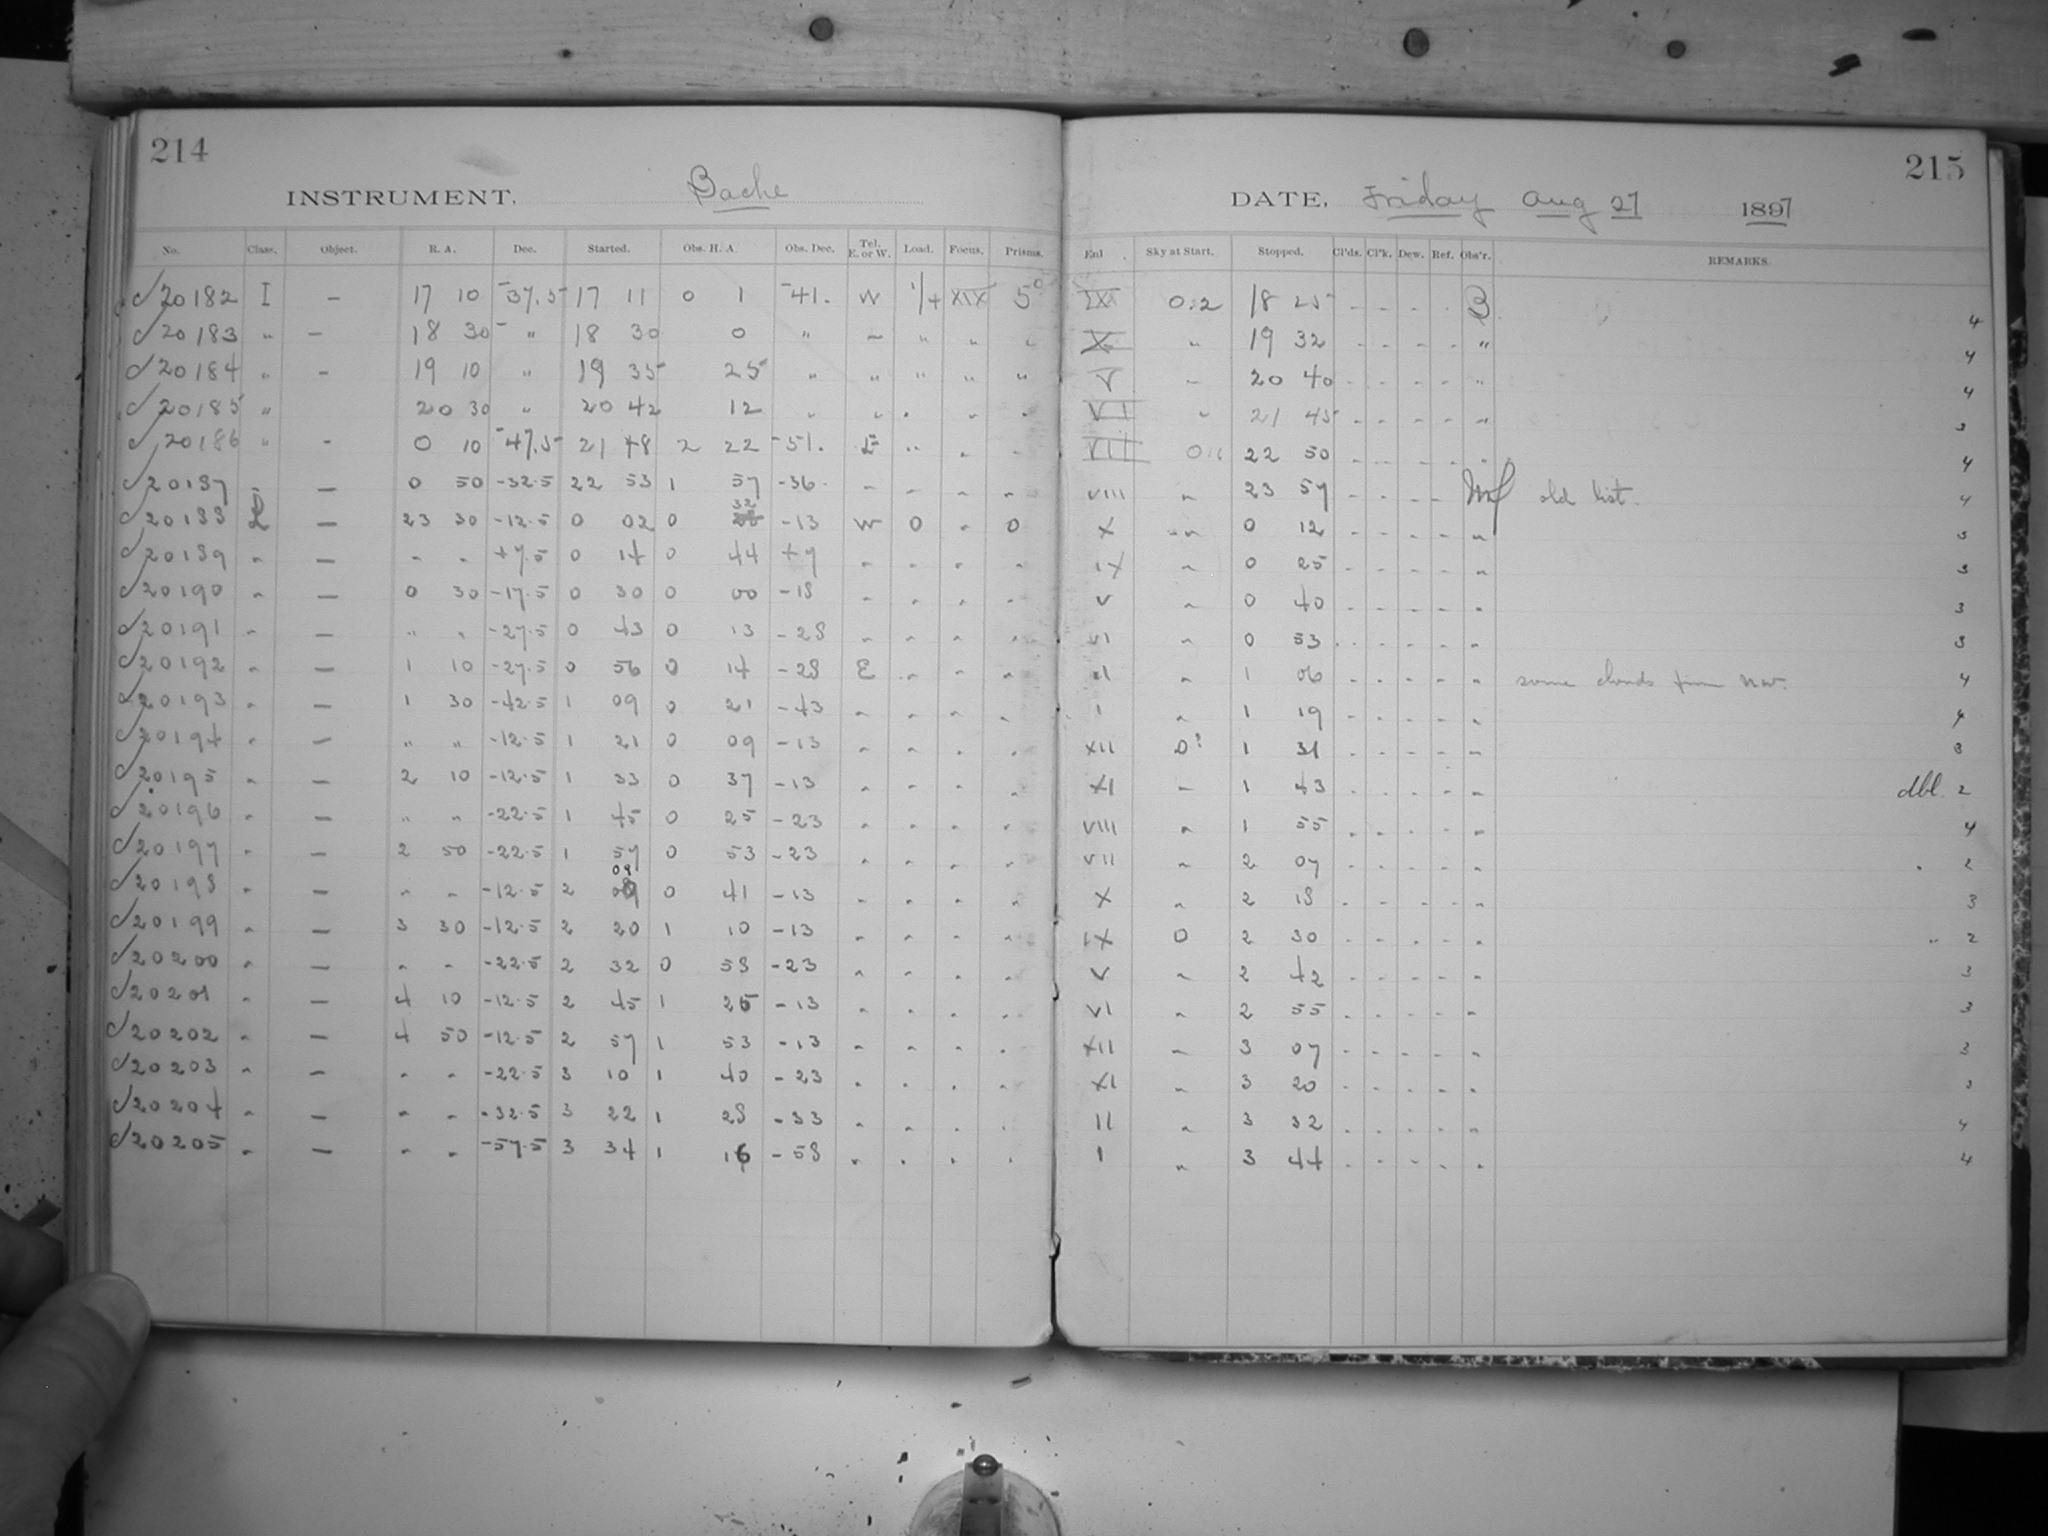 214
INSTRUMENT. Bache
No. Class. Object. R. A. Dec. Started. Obs. H. A. Obs. Dec. Tel. E. or W. Load. Focus. Prisms.
√20182 I – 17 10 -37.5 17 11 0 1 -41. W 1/4 XIX 5°
√20183 " – 18 30 - " 18 30 0 " – " " "
√20184 " – 19 10 " 19 35 25 " " " " "
√20185 " 20 30 " 20 42 12 " " . " "
√20186 " - 0 10 -47.5 21 48 2 22 -51. E " " -
√20187 – 0 50 -32.5 22 53 1 57 -36. – – " "
√20188 2 – 23 30 -12.5 0 02 0 32 -13 W 0 " 0
√20189 " – " " +7.5 0 14 0 44 +7 " " " "
√20190 " – 0 30 -17.5 0 30 0 00 -18 " " " "
√20191 " – " " -27.5 0 43 0 13 -28 " " " "
√20192 " – 1 10 -27.5 0 56 0 14 -28 E " " "
√20193 " – 1 30 -42.5 1 09 0 21 -43 " " " "
√20194 " – " " -12.5 1 21 0 09 -13 " " " "
√20195 " – 2 10 -12.5 1 33 0 37 -13 " " " "
√20196 " – " " -22.5 1 45 0 25 -23 " " " "
√20197 " – 2 50 -22.5 1 57 0 53 -23 " " " "
√20198 " – " " -12.5 2 09 0 41 -13 " " " "
√20199 " – 3 30 -12.5 2 20 1 10 -13 " " " "
√20200 " – " " -22.5 2 32 0 58 -23 " " " "
√20201 " – 4 10 -12.5 2 45 1 25 -13 " " " "
√20202 " – 4 50 -12.5 2 57 1 53 -13 " " " "
√20203 " – " " -22.5 3 10 1 40 -23 " " " "
√20204 " – " " -32.5 3 22 1 28 -33 " " " "
√20205 " – " " -57.5 3 34 1 16 -58 " " " "
215
DATE. Friday Aug 27 1897
Enl. Sky at Start. Stopped. Cl'ds. Cl'k. Dew. Ref. Obs'r. REMARKS.
IX 0:2 18 25 - - - - B 4
X " 19 32 - - - - " 4
V – 20 40 - - - - " 4
VI " 21 45 - - - - " 3
VII 22 50 - - - - " 4
VIII " 23 57 - - - - old list. 4
X " 0 12 - - - - " 3
IX " 0 25 - - - - " 3
V " 0 40 - - - - " 3
VI " 0 53 - - - - " 3
" 1 06 - - - - " some clouds from NW. 4
I " 1 19 - - - - " 4
XII 0? 1 31 - - - - " 3
XI – 1 43 - - - - " dbl. 2
VIII " 1 55 - - - - " 4
VII " 2 07 - - - - " " 2
X " 2 18 - - - - " 3
IX 0 2 30 - - - - " " 2
V " 2 42 - - - - " 3
VI " 2 55 - - - - " 3
XII " 3 07 - - - - " 3
XI " 3 20 - - - - " 3
II " 3 32 - - - - " 4
I " 3 44 - - - - " 4